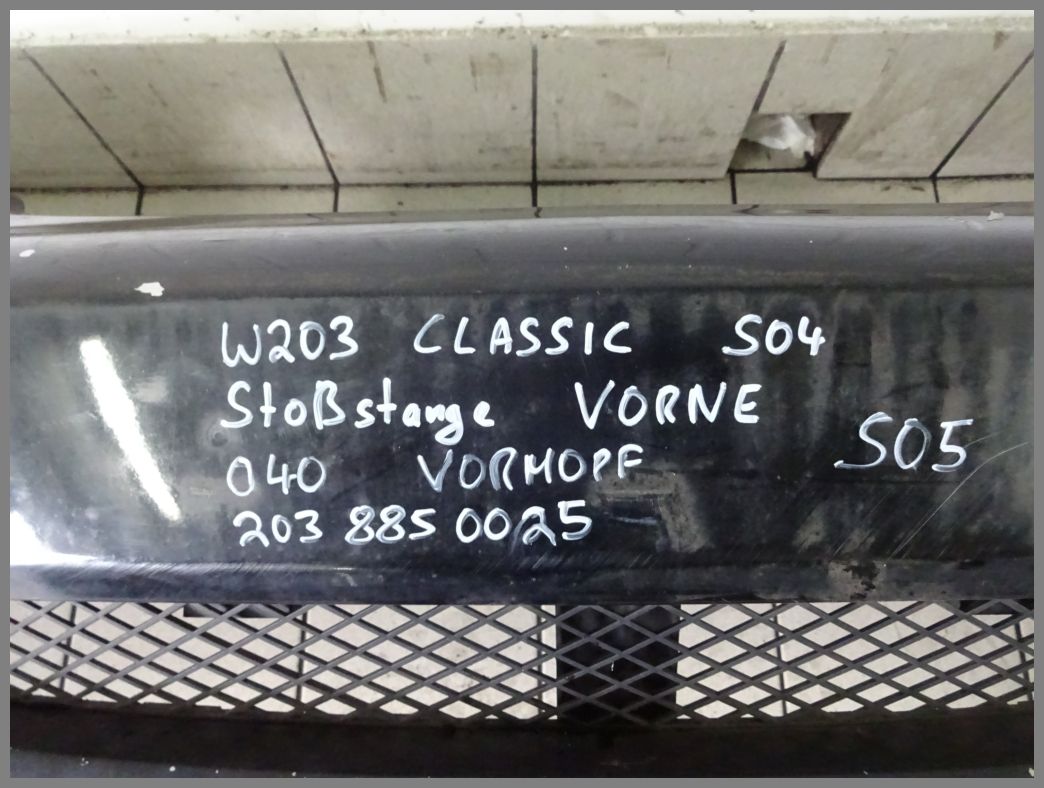 W203 CLASSIC S04
Stoßstange VORNE
S05
040 VORMOPF
203 885 0025